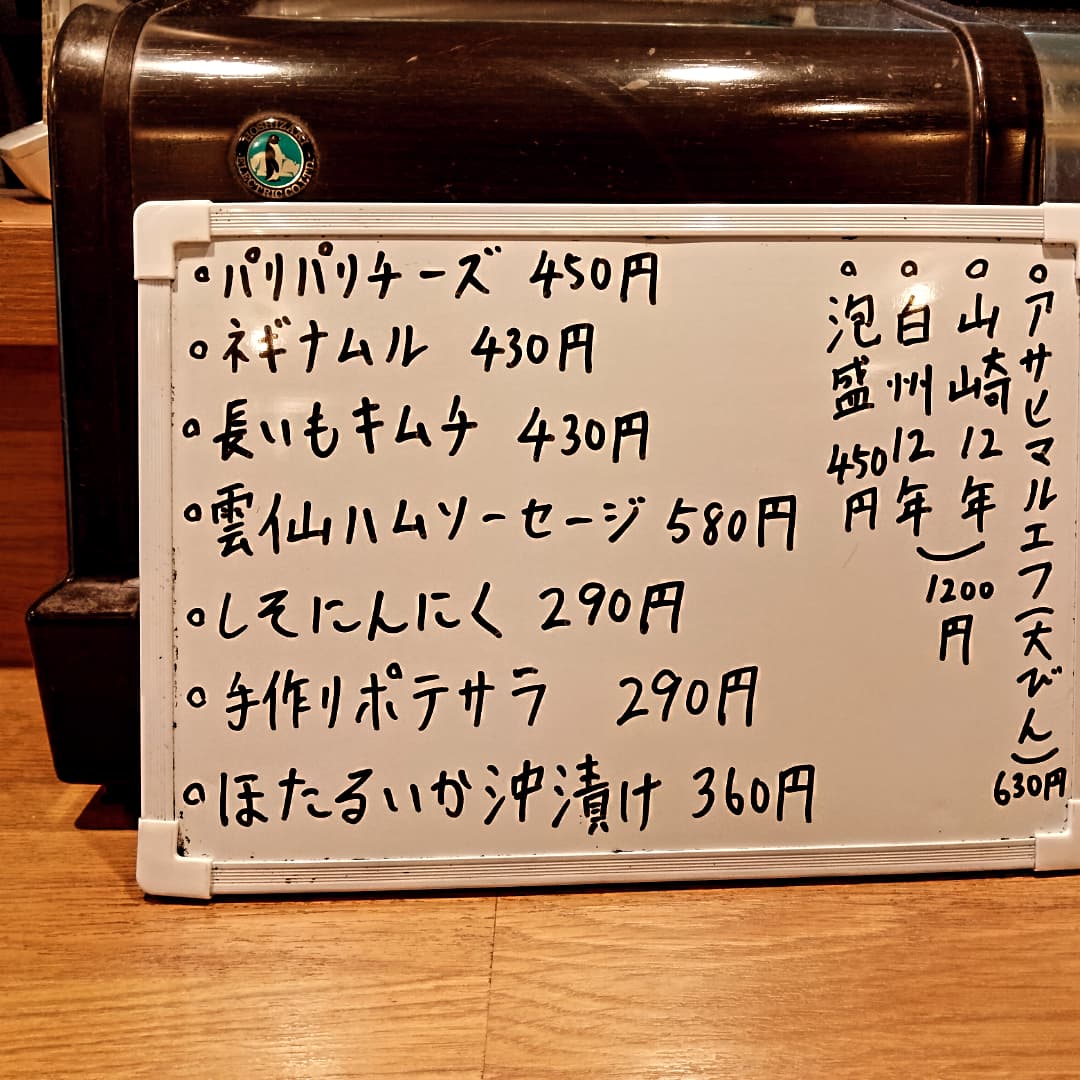 HOSHIZAKI
ELECTRIC CO.,LTD.
。パリパリチーズ 450円
。ネギナムル 430円
。長いもキムチ 430円
。雲仙ハムソーセージ 580円
。しそにんにく 290円
。手作りポテサラ 290円
。ほたるいか沖漬け 360円
。アサヒマルエフ(大びん) 630円
。山崎12年
。白州12年
1200円
。泡盛 450円